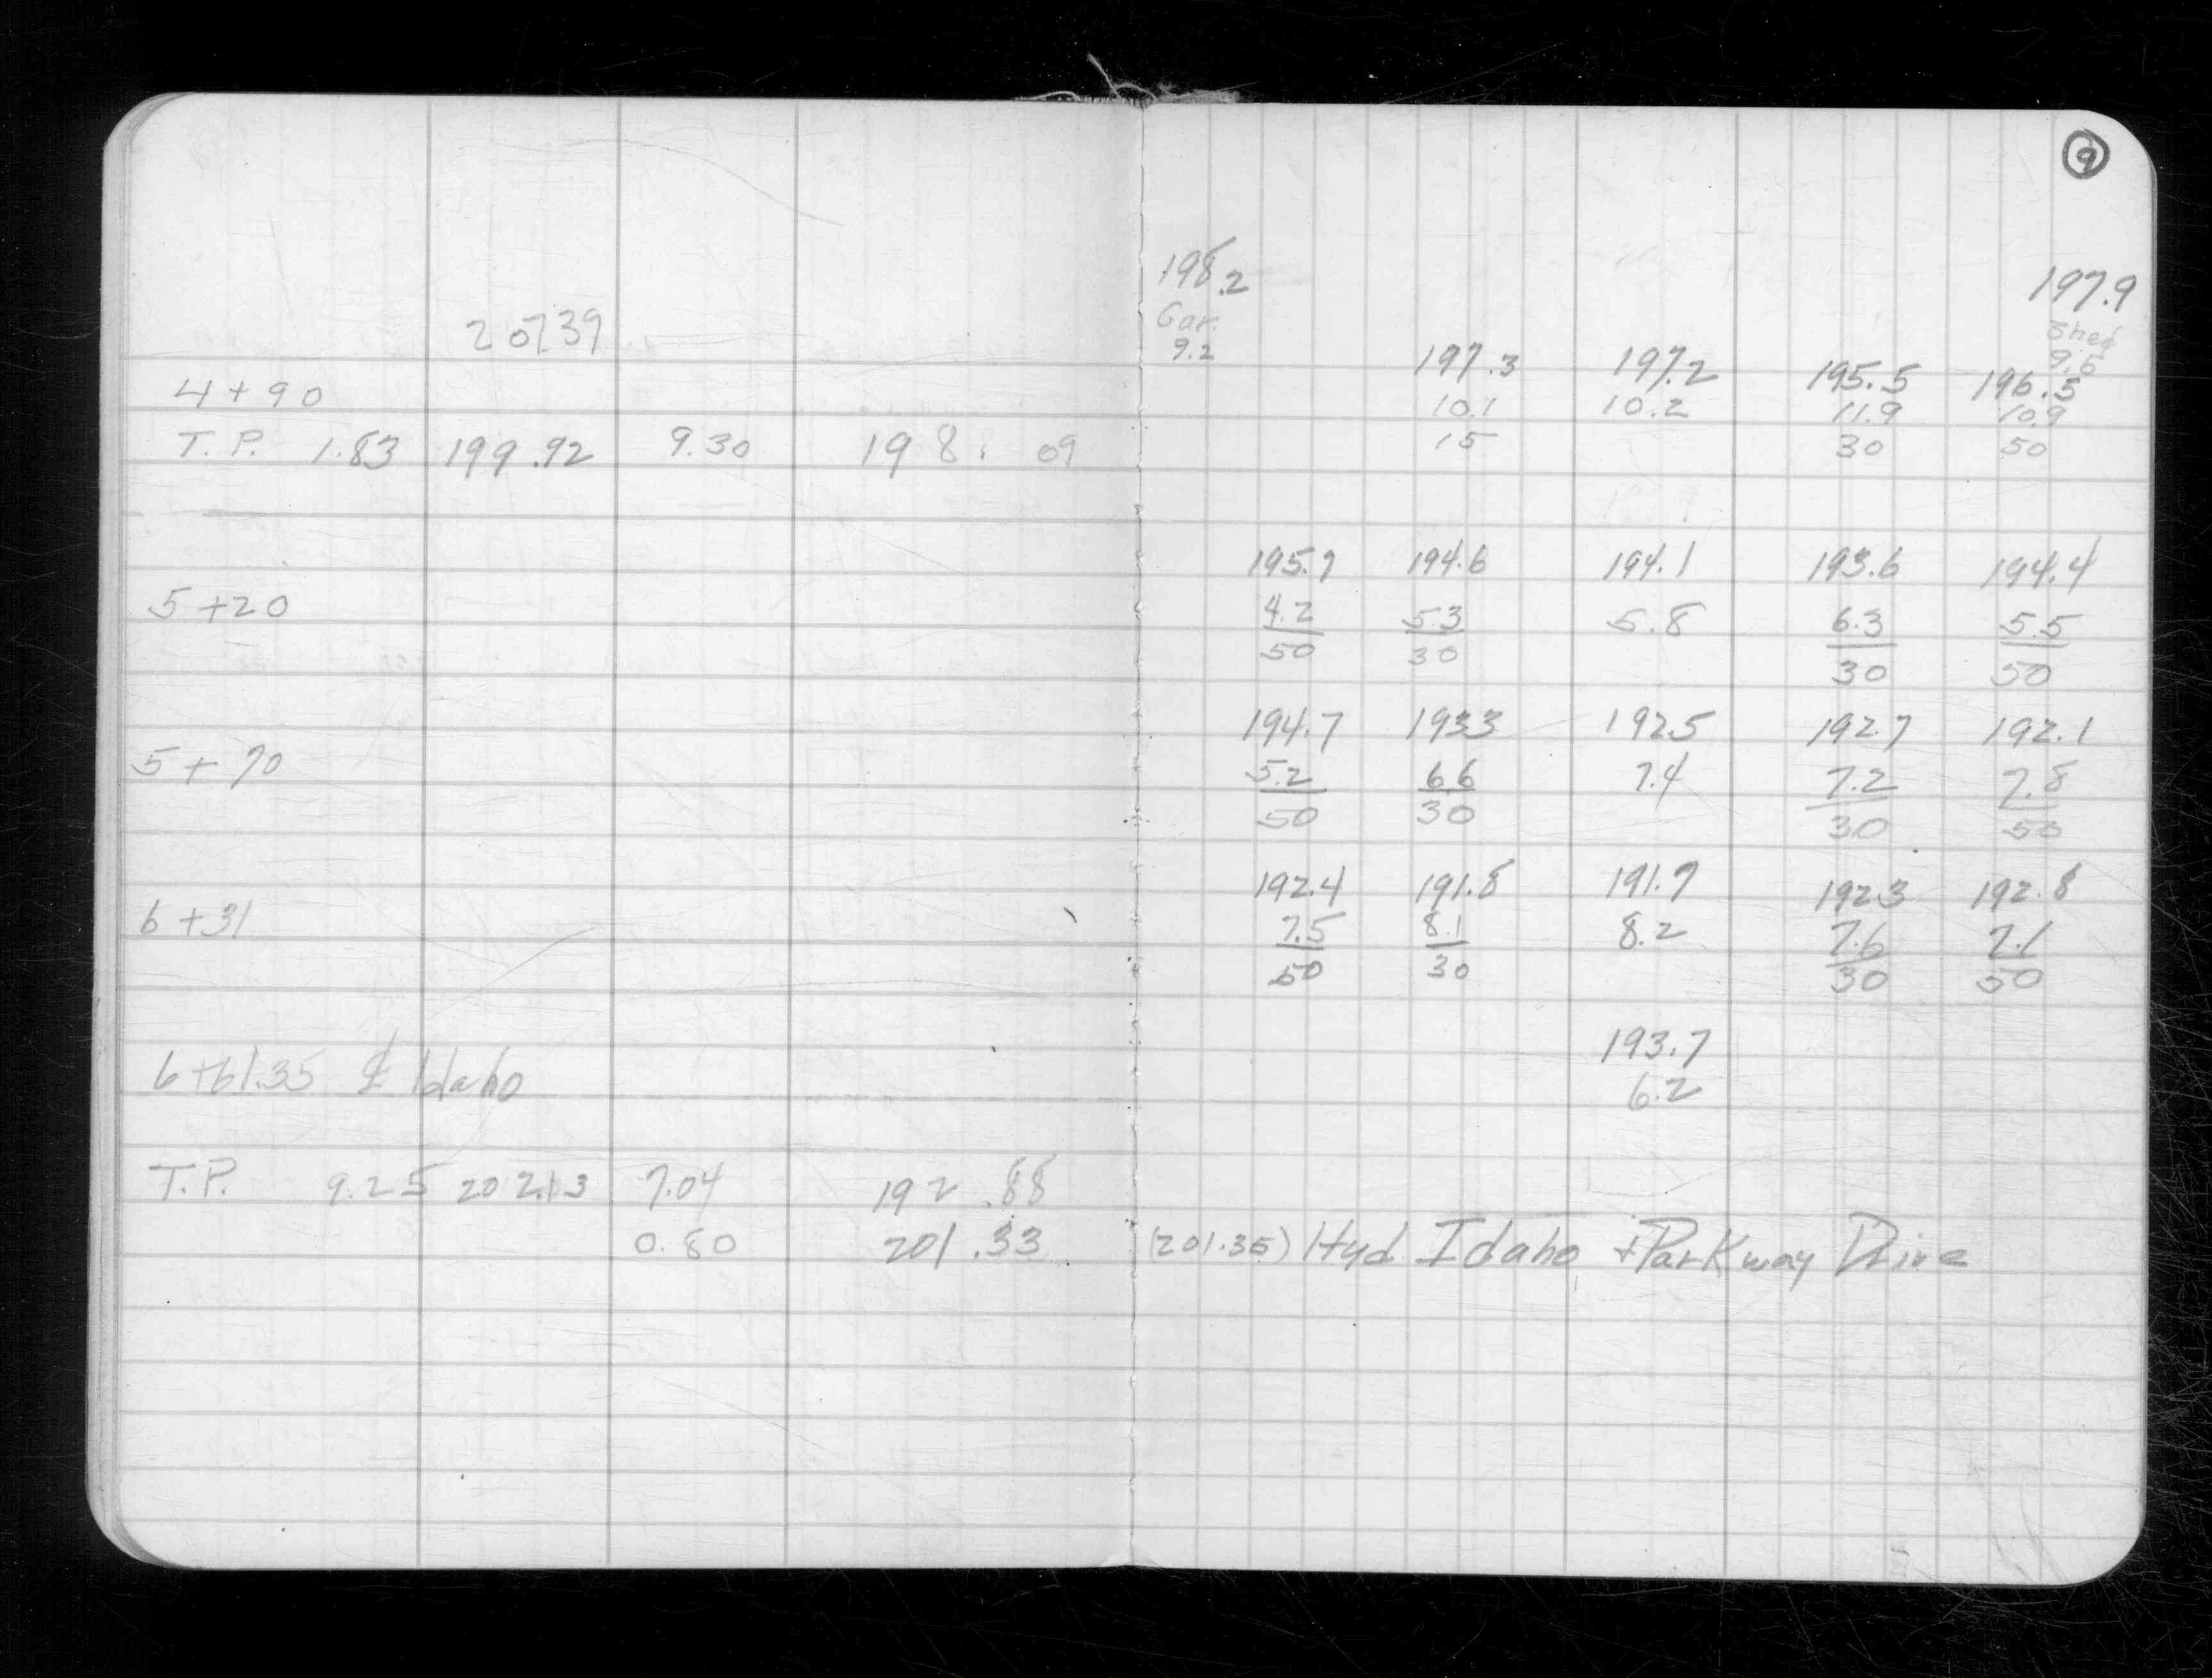 9
198.2
197.9
Gar.
Shed
207.39
9.2
9.5
197.3 197.2 195.5 196.5
4+90
10.1 10.2 11.9 10.9
T.P. 1.83 199.92 9.30 198.09
15 30 50
195.7 194.6 194.1 193.6 194.4
5+20
4.2 5.3 5.8 6.3 5.5
50 30 30 50
194.7 193.3 192.5 192.7 192.1
5+70
5.2 6.6 7.4 7.2 7.8
50 30 30 50
192.4 191.8 191.7 192.3 192.8
6+31
7.5 8.1 8.2 7.6 7.1
50 30 30 50
193.7
6+61.35 ℄ Idaho
6.2
T.P. 9.25 202.13 7.04 192.88
0.80 201.33 (201.35) Hyd Idaho + Parkway Drive